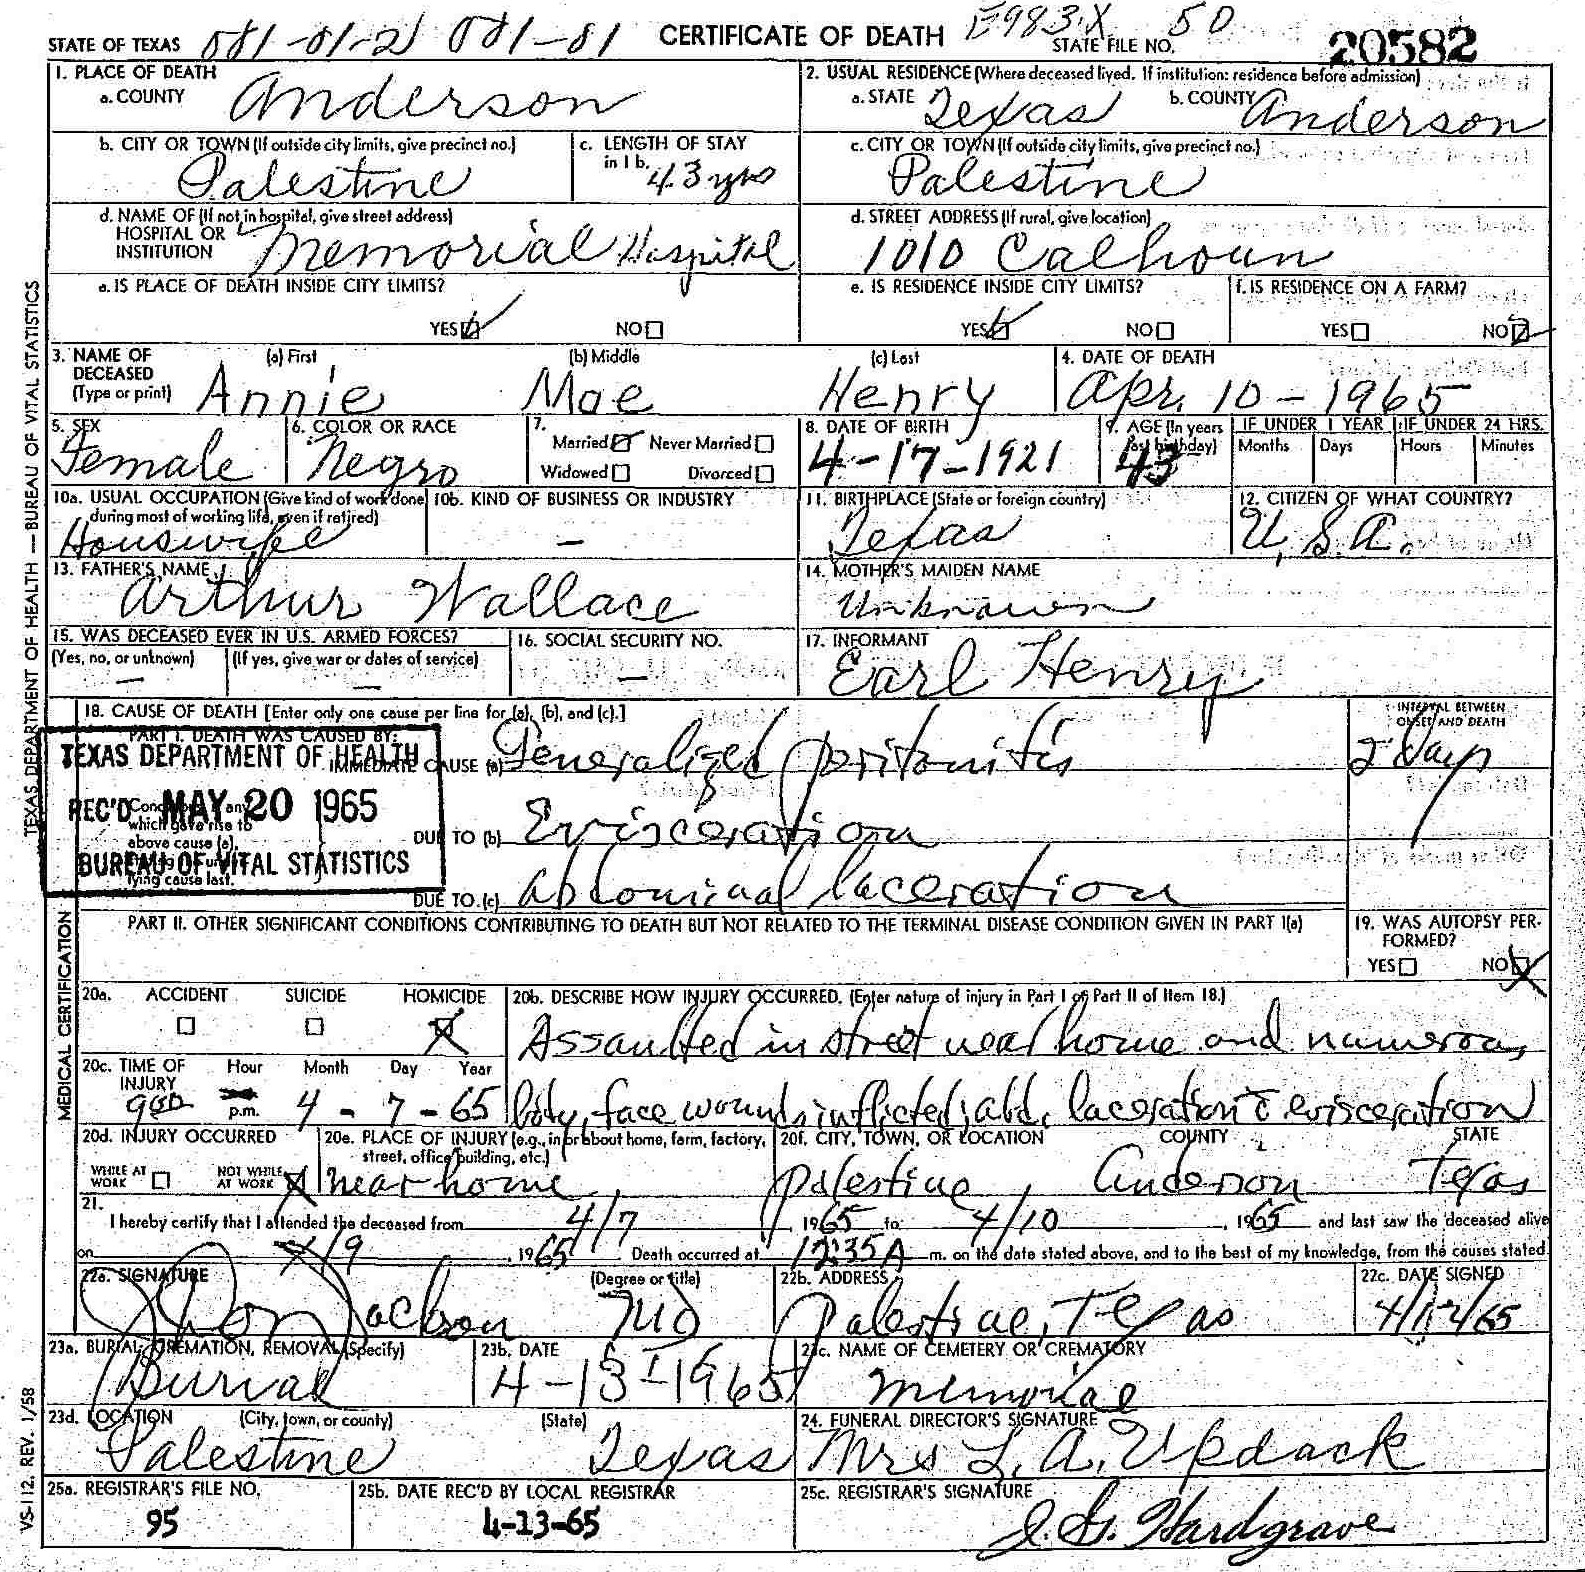 STATE OF TEXAS 081-01-2 081-81 CERTIFICATE OF DEATH E983X 50 STATE FILE NO. 20582
1. PLACE OF DEATH
a. COUNTY Anderson
2. USUAL RESIDENCE (Where deceased lived. If institution: residence before admission)
a. STATE Texas b. COUNTY Anderson
b. CITY OR TOWN (If outside city limits, give precinct no.) Palestine
c. LENGTH OF STAY in 1 b. 43 yrs
c. CITY OR TOWN (If outside city limits, give precinct no.) Palestine
d. NAME OF (If not in hospital, give street address) HOSPITAL OR INSTITUTION Memorial Hospital
d. STREET ADDRESS (If rural, give location) 1010 Calhoun
e. IS PLACE OF DEATH INSIDE CITY LIMITS?
YES NO
e. IS RESIDENCE INSIDE CITY LIMITS?
YES NO
f. IS RESIDENCE ON A FARM?
YES NO
3. NAME OF DECEASED (Type or print)
(a) First (b) Middle (c) Last
Annie Mae Henry
4. DATE OF DEATH Apr. 10-1965
5. SEX Female
6. COLOR OR RACE Negro
7. Married Never Married
Widowed Divorced
8. DATE OF BIRTH 4-17-1921
9. AGE (In years last birthday) 43
IF UNDER 1 YEAR Months Days
IF UNDER 24 HRS. Hours Minutes
10a. USUAL OCCUPATION (Give kind of work done during most of working life, even if retired) Housewife
10b. KIND OF BUSINESS OR INDUSTRY —
11. BIRTHPLACE (State or foreign country) Texas
12. CITIZEN OF WHAT COUNTRY? U.S.A.
13. FATHER'S NAME Arthur Wallace
14. MOTHER'S MAIDEN NAME Unknown
15. WAS DECEASED EVER IN U.S. ARMED FORCES?
(Yes, no, or unknown) — (If yes, give war or dates of service) —
16. SOCIAL SECURITY NO. —
17. INFORMANT Earl Henry
18. CAUSE OF DEATH [Enter only one cause per line for (a), (b), and (c).]
INTERVAL BETWEEN ONSET AND DEATH
PART I. DEATH WAS CAUSED BY:
IMMEDIATE CAUSE (a) Generalized peritonitis 2 days
DUE TO (b) Evisceration
DUE TO (c) abdominal laceration
Conditions, if any which gave rise to above cause (a), lying cause last.
TEXAS DEPARTMENT OF HEALTH
REC'D MAY 20 1965
BUREAU OF VITAL STATISTICS
PART II. OTHER SIGNIFICANT CONDITIONS CONTRIBUTING TO DEATH BUT NOT RELATED TO THE TERMINAL DISEASE CONDITION GIVEN IN PART I(a)
19. WAS AUTOPSY PERFORMED?
YES NO
20a. ACCIDENT SUICIDE HOMICIDE
20b. DESCRIBE HOW INJURY OCCURRED. (Enter nature of injury in Part I or Part II of Item 18.)
Assaulted in street near home and numerous
body, face wounds inflicted; abd. laceration c̄ evisceration
20c. TIME OF INJURY Hour Month Day Year
900 p.m. 4-7-65
20d. INJURY OCCURRED
WHILE AT WORK NOT WHILE AT WORK
20e. PLACE OF INJURY (e.g., in or about home, farm, factory, street, office building, etc.) near home
20f. CITY, TOWN, OR LOCATION COUNTY STATE
Palestine Anderson Texas
21.
I hereby certify that I attended the deceased from 4/7, 1965 to 4/10, 1965 and last saw the deceased alive
on 4/9, 1965 Death occurred at 12:35A m. on the date stated above, and to the best of my knowledge, from the causes stated.
22a. SIGNATURE (Degree or title) Jackson MD
22b. ADDRESS Palestine, Texas
22c. DATE SIGNED 4/12/65
23a. BURIAL, CREMATION, REMOVAL (Specify) Burial
23b. DATE 4-13-1965
23c. NAME OF CEMETERY OR CREMATORY Memorial
23d. LOCATION (City, town, or county) (State)
Palestine Texas
24. FUNERAL DIRECTOR'S SIGNATURE Mrs L. A. Updack
25a. REGISTRAR'S FILE NO. 95
25b. DATE REC'D BY LOCAL REGISTRAR 4-13-65
25c. REGISTRAR'S SIGNATURE Hardgrave
TEXAS DEPARTMENT OF HEALTH — BUREAU OF VITAL STATISTICS
MEDICAL CERTIFICATION
VS-112. REV. 1/58